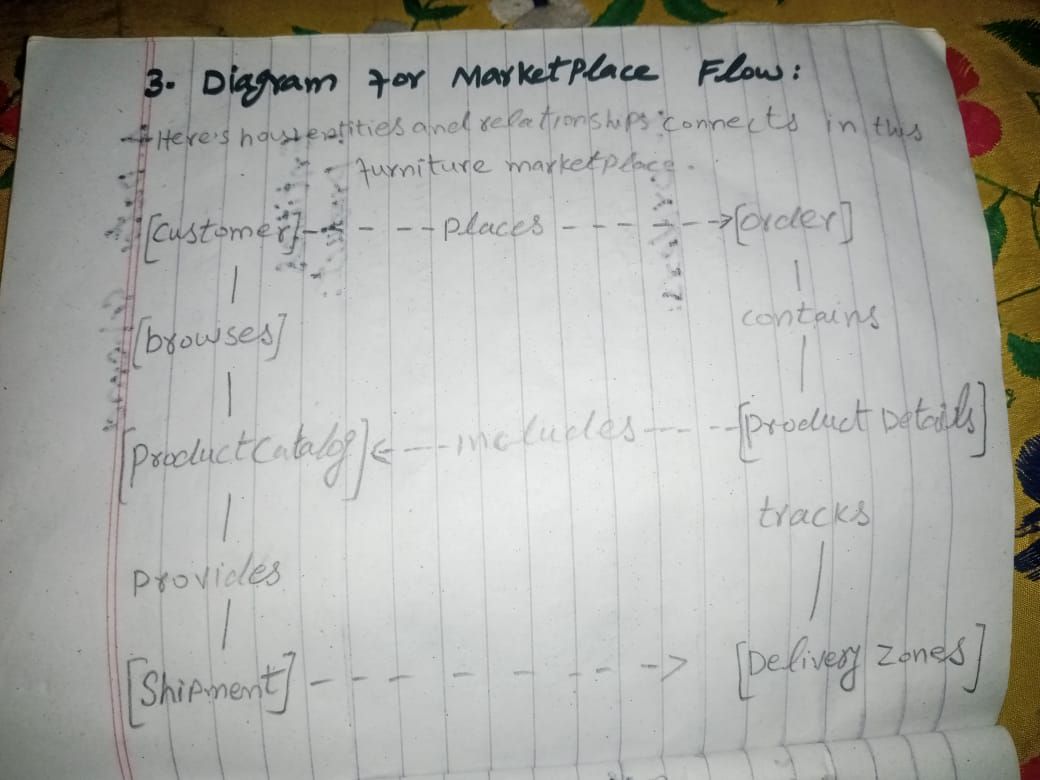 3. Diagram for MarketPlace Flow:
Here's how entities and relationships connects in this
furniture marketplace.
[Customer] - - - - places - - - - - -> [order]
|
|
contains
[browses]
|
|
[Product Catalog] <- - - includes - - - - [Product Details]
|
tracks
provides
|
|
[Shipment] - - - - - - - -> [Delivery Zones]